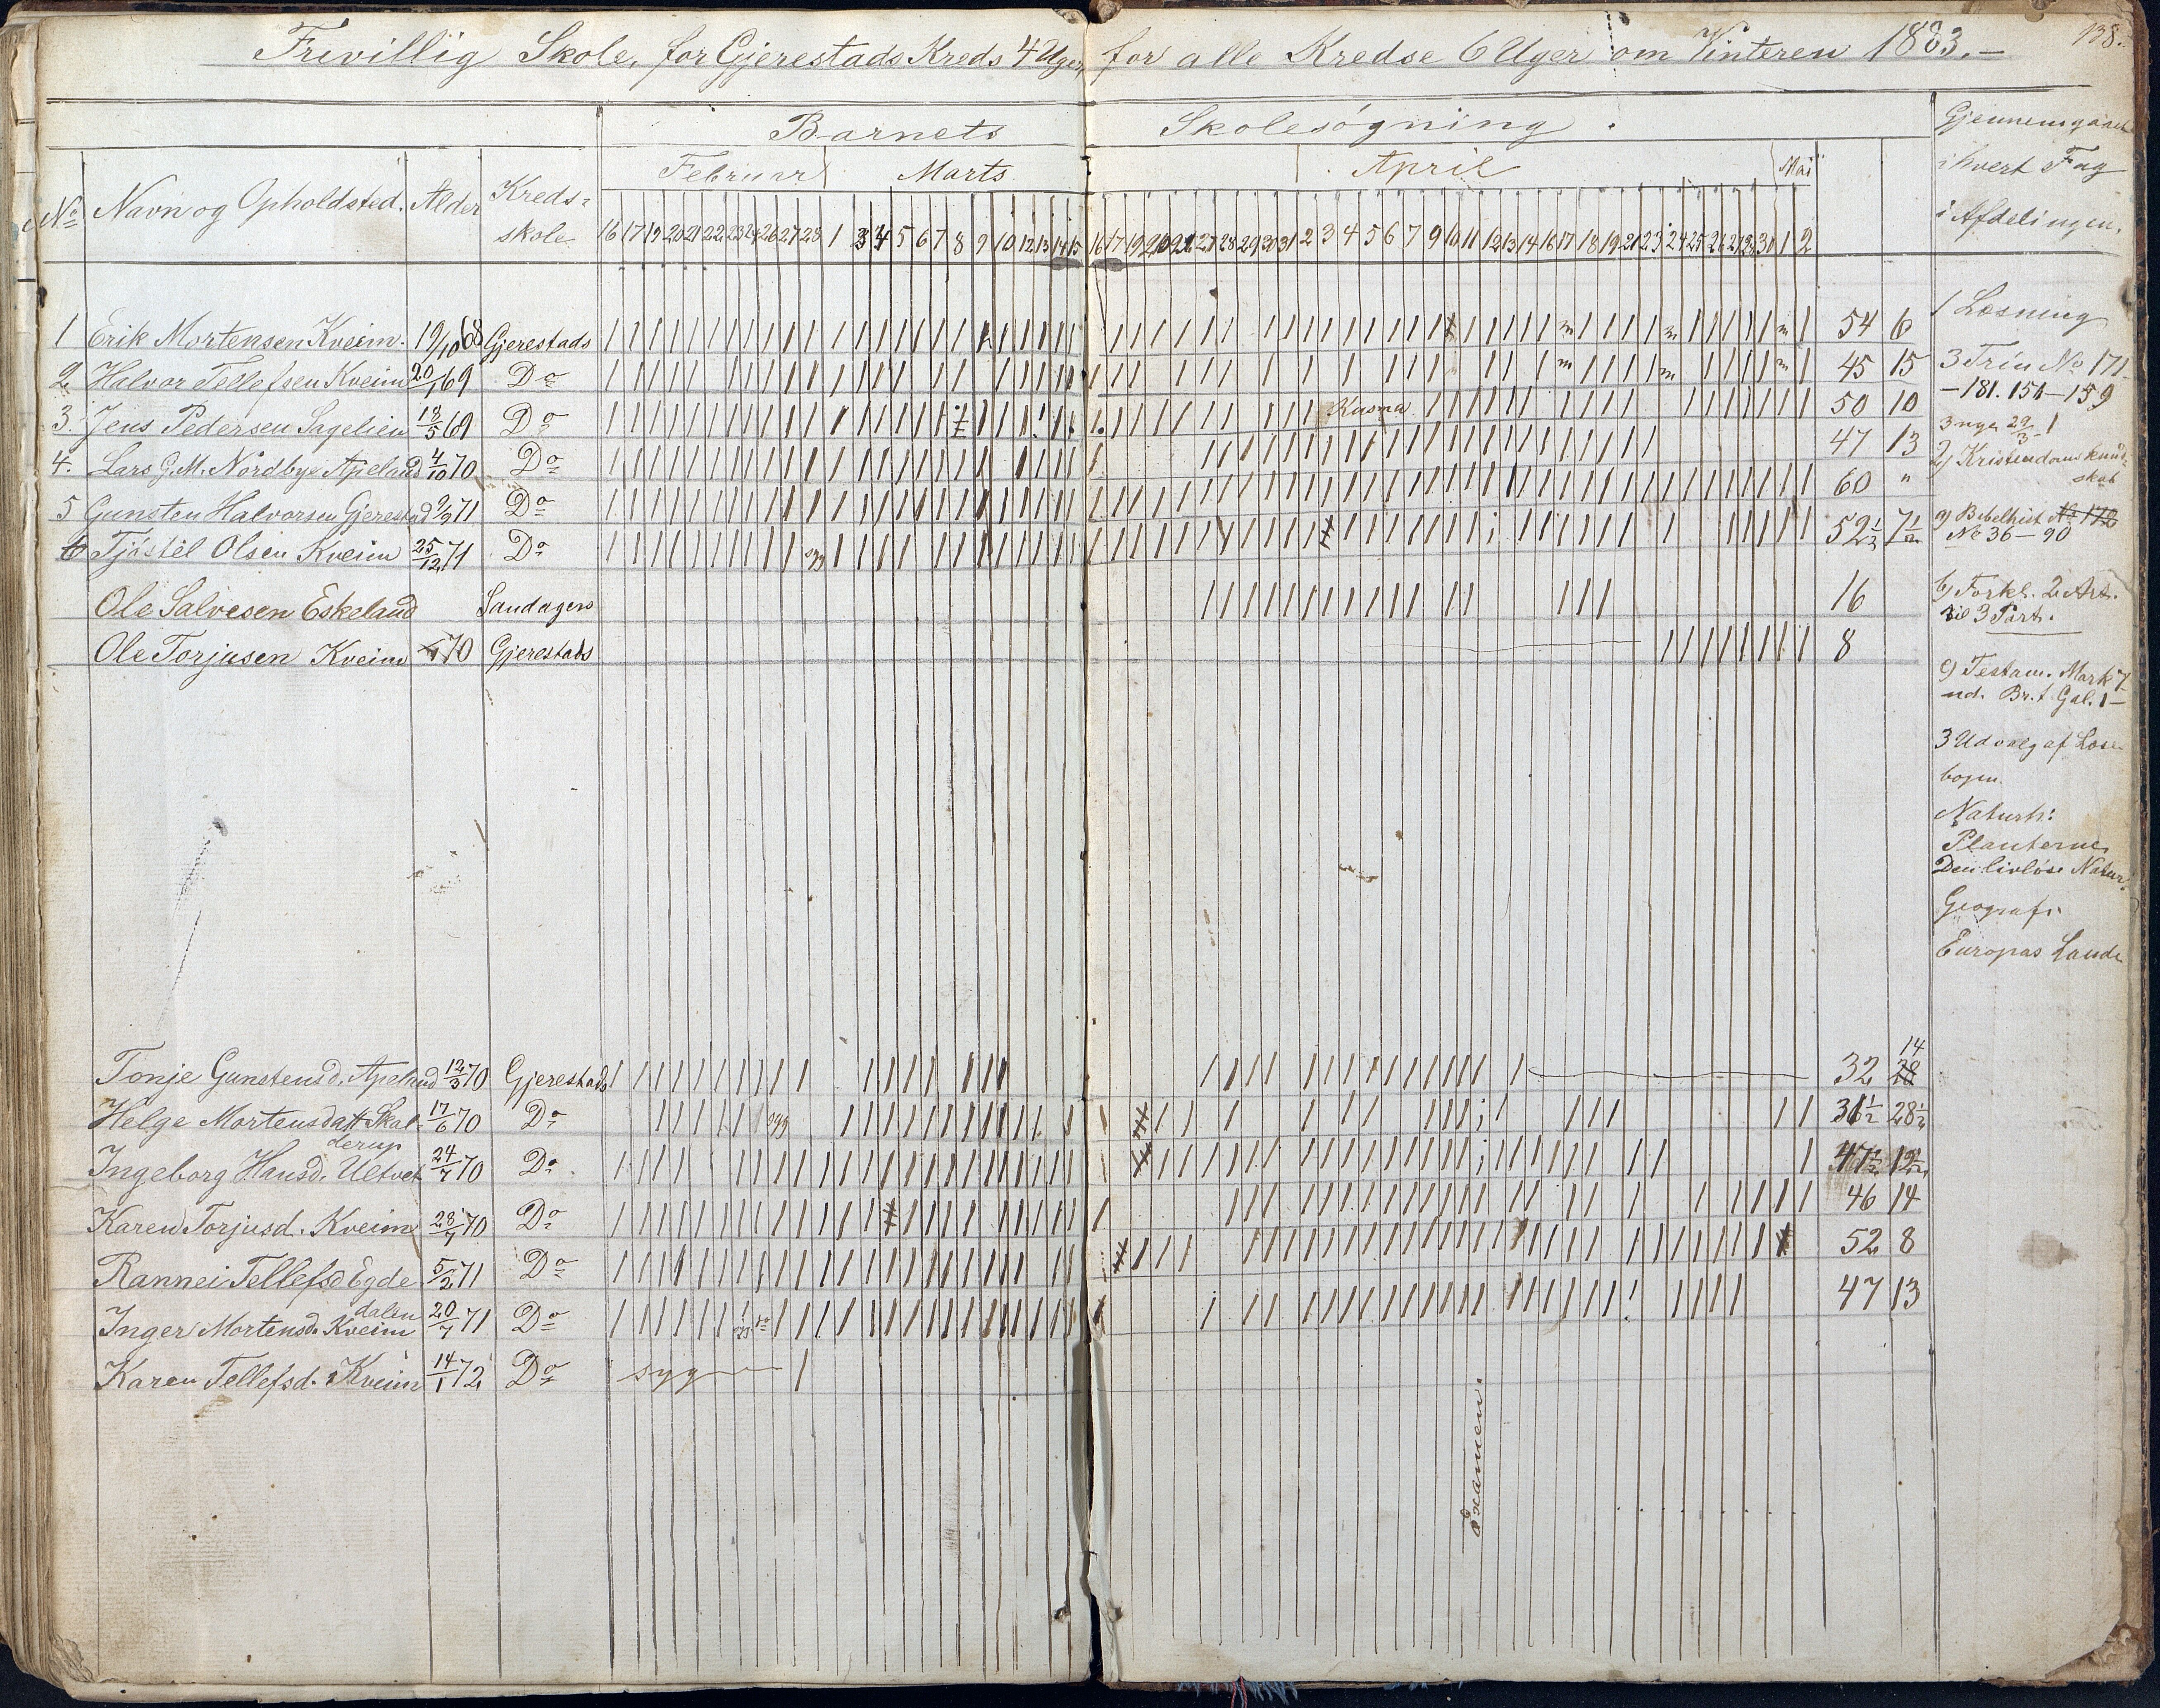 Frivillig Skole, for Gjerestads Kreds 4 Uger, for alle Kredse 6 Uger om Vinteren 1883.—
138.
Barnets Skolesøgning.
Gjennemgaaet
i hvert Fag
i Afdelingen.
Februar Marts April Mai
No Navn og Opholdsted. Alder Kreds-
skole
16 17 19 20 21 22 23 24 26 27 28 1 3 4 5 6 7 8 9 10 12 13 14 15 16 17 19 20 21 27 28 29 30 31 2 3 4 5 6 7 9 10 11 12 13 14 16 17 18 19 21 23 24 25 26 27 28 30 1 2
1 Erik Mortensen Kveim. 19/10 68 Gjerestads 54 6
2 Halvor Tellefsen Kveim 20/1 69 Do 45 15
3. Jens Pedersen Sagelien 13/5 69 Do 50 10
4. Lars G. M. Nordbye Apeland 4/10 70 Do 47 13
5 Gunsten Halvorsen Gjerestad 9/9 71 Do 60 "
6 Tjöstel Olsen Kveim 25/12 71 Do syg 52½ 7½
Ole Salvesen Eskeland Sandagers 16
Ole Torjusen Kveim 70 Gjerestads 8
1 Læsning
3 Trin No 171
— 181. 154 — 159
2) Kristendomskund-
skab
a) Bibelhist. No 172
No 36 — 90
b) Forkl. 2 Art.
til 3 Part.
c) Testam. Mark 7
Br. t. Gal. 1 —
3 Udvalg af Læse-
bogen.
Naturh:
Planterne
Den livløse Natur.
Geografi
Europas Lande
Tonje Gunstensd. Apeland 12/3 70 Gjerestads 32 14 28
Helge Mortensdatt. Skal-
derup 17/6 70 Do syg 31½ 28½
Ingeborg Hansd. Ultvet 24/7 70 Do 47½ 12½
Karen Torjusd. Kveim 28/7 70 Do 46 14
Rannei Tellefsd Egde
dalen 5/2 71 Do 52 8
Inger Mortensd. Kveim 20/7 71 Do 47 13
Karen Tellefsd. Kveim 14/1 72 Do syg
Examen.